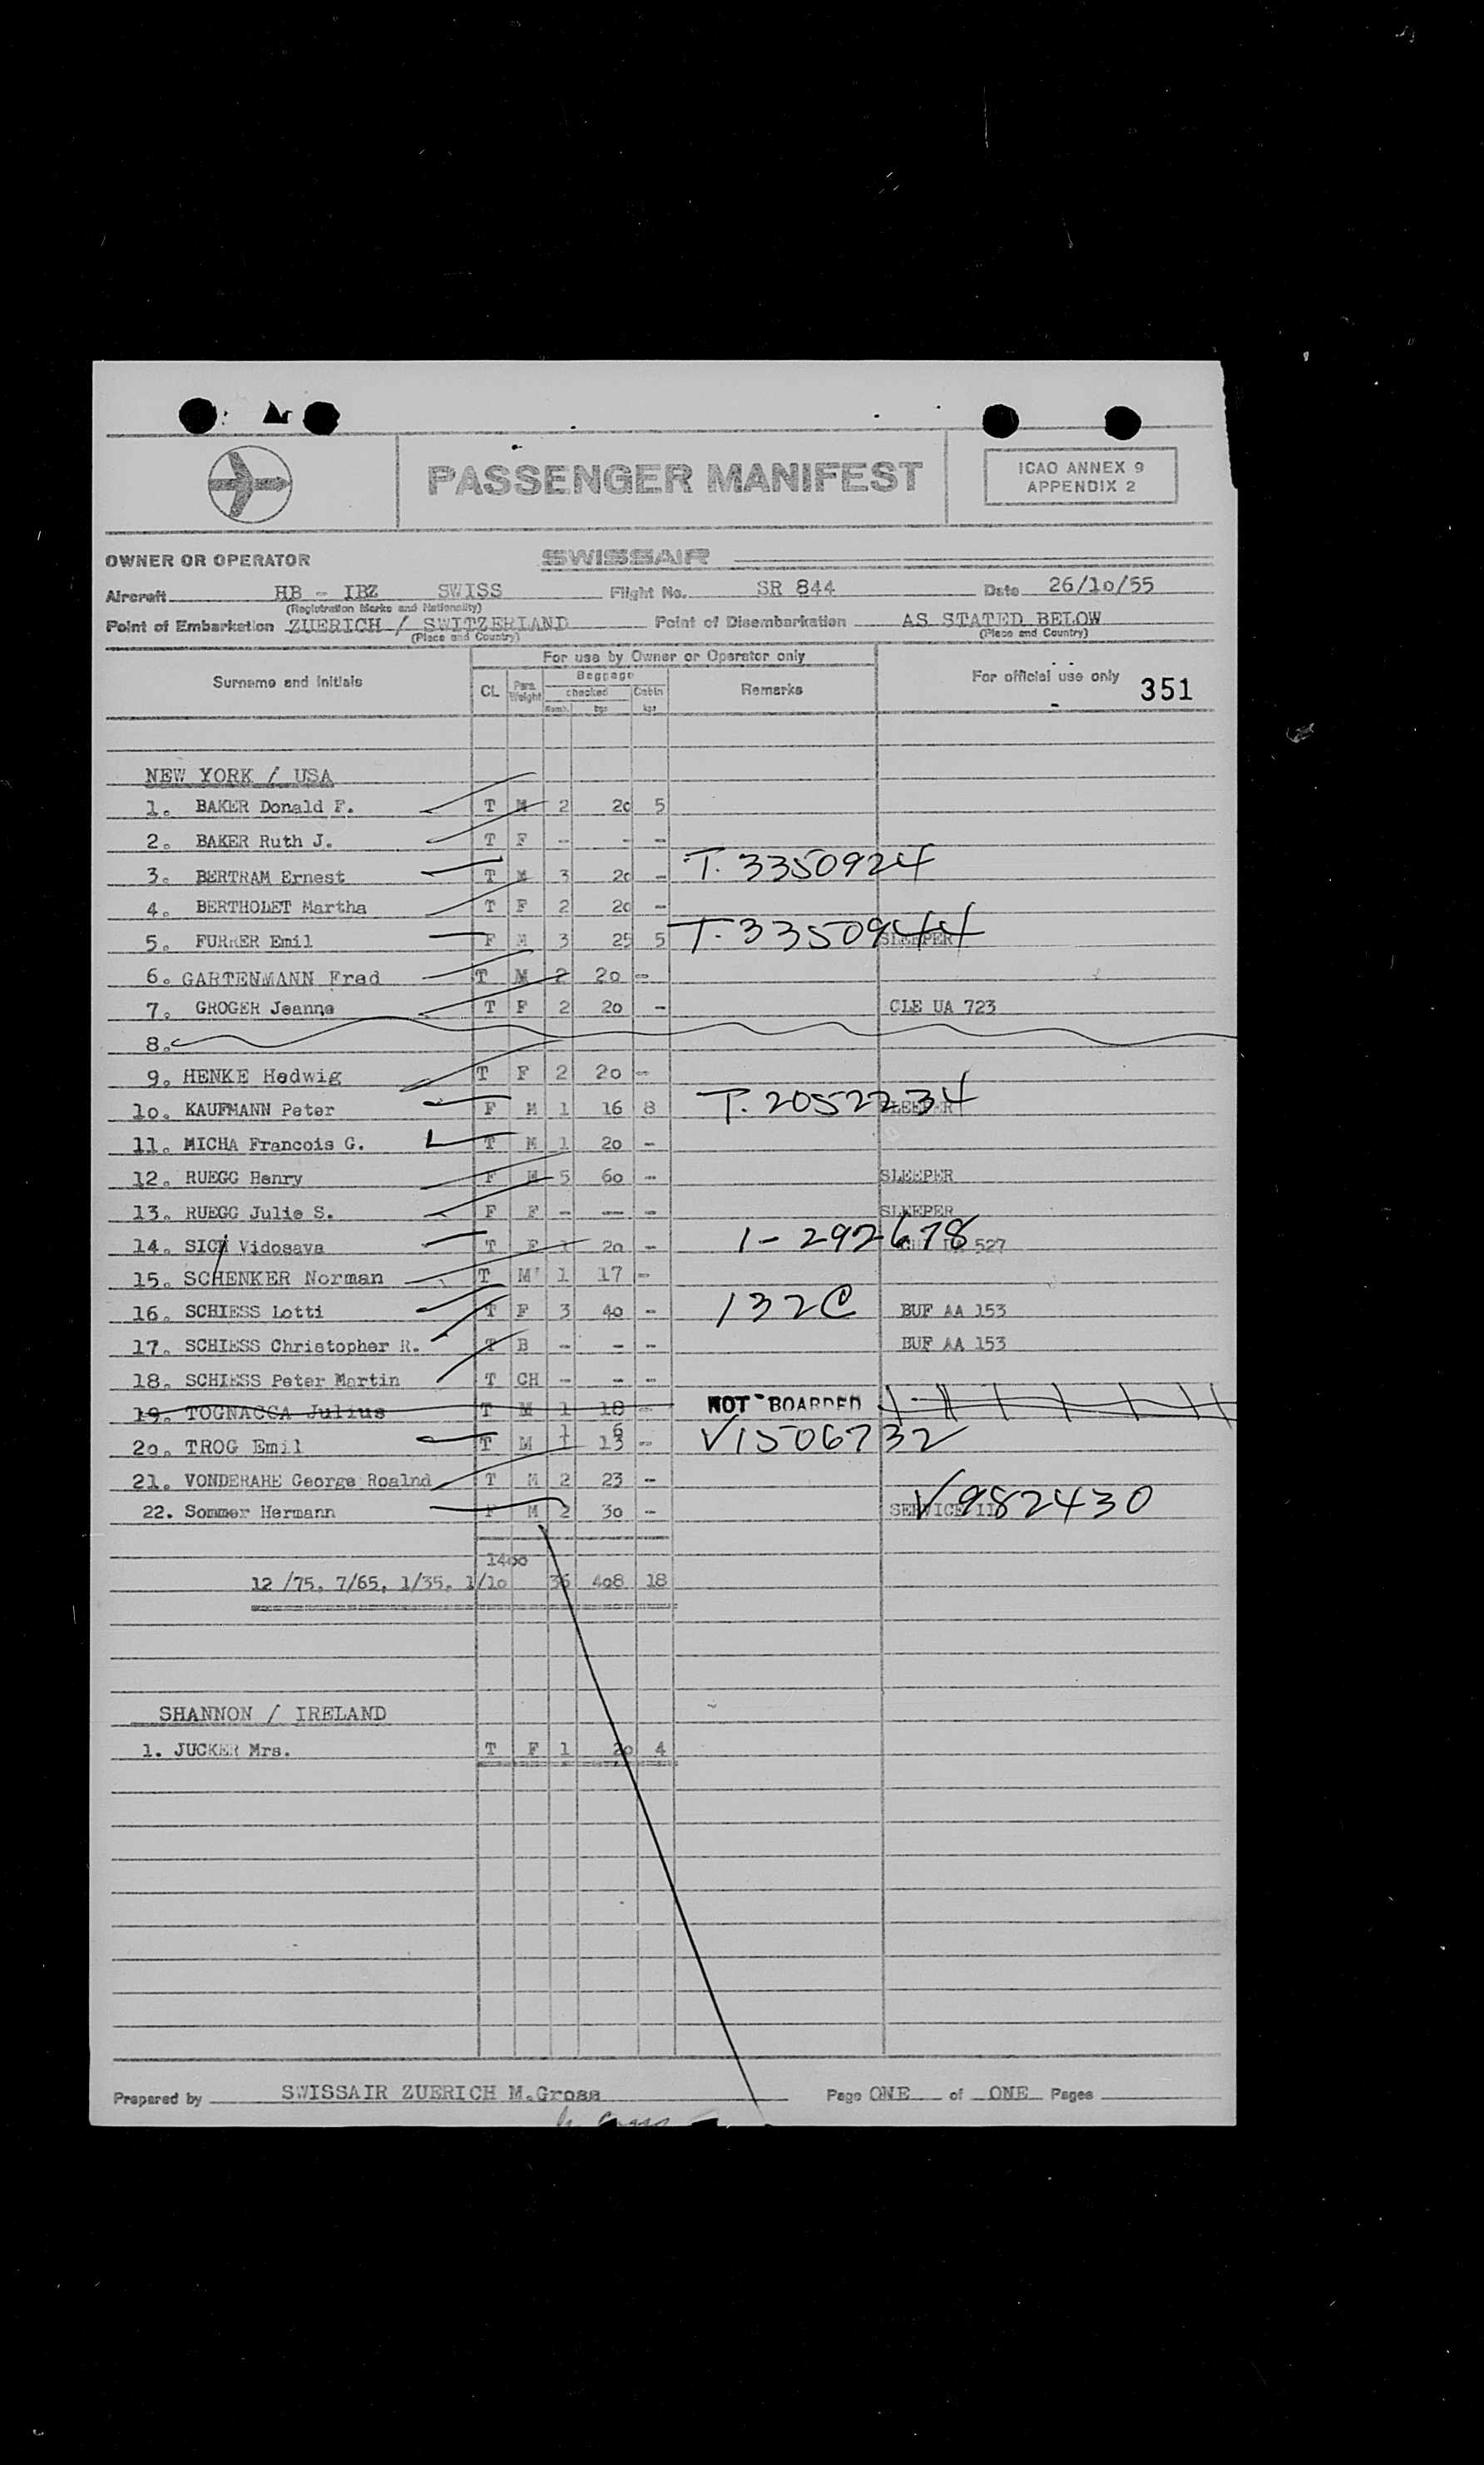 PASSENGER MANIFEST
ICAO ANNEX 9
APPENDIX 2
OWNER OR OPERATOR SWISSAIR
Aircraft HB - IBZ SWISS Flight No. SR 844 Date 26/10/55
(Registration Marks and Nationality)
Point of Embarkation ZUERICH / SWITZERLAND Point of Disembarkation AS STATED BELOW
(Place and Country) (Place and Country)
For use by Owner or Operator only
Surname and Initials CL Pass. Weight Baggage checked Numb. kgs Cabin kgs Remarks For official use only 351
NEW YORK / USA
1. BAKER Donald F. T M 2 20 5
2. BAKER Ruth J. T F - - -
3. BERTRAM Ernest T M 3 20 - T. 3350924
4. BERTHOLET Martha T F 2 20 -
5. FURRER Emil F M 3 25 5 T. 3350944 SLEEPER
6. GARTENMANN Fred T M 2 20 -
7. GROGER Jeanne T F 2 20 - CLE UA 723
8.
9. HENKE Hedwig T F 2 20 -
10. KAUFMANN Peter F M 1 16 8 T. 2052234 SLEEPER
11. MICHA Francois G. T M 1 20 -
12. RUEGG Henry F M 5 60 - SLEEPER
13. RUEGG Julie S. F F - -- - SLEEPER
14. SICH Vidosava T F 1 20 - 1-292678 527
15. SCHENKER Norman T M 1 17 -
16. SCHIESS Lotti T F 3 40 - 132C BUF AA 153
17. SCHIESS Christopher R. T B - - - BUF AA 153
18. SCHIESS Peter Martin T CH - - -
19. TOGNACCA Julius T M 1 18 - NOT BOARDED
20. TROG Emil T M 1 13 - V1506732
21. VONDERAHE George Roalnd T M 2 23 -
22. Sommer Hermann F M 2 30 - SERVICE II V982430
1400
12 /75, 7/65, 1/35, 1/10 36 408 18
SHANNON / IRELAND
1. JUCKER Mrs. T F 1 20 4
Prepared by SWISSAIR ZUERICH M.Gross Page ONE of ONE Pages